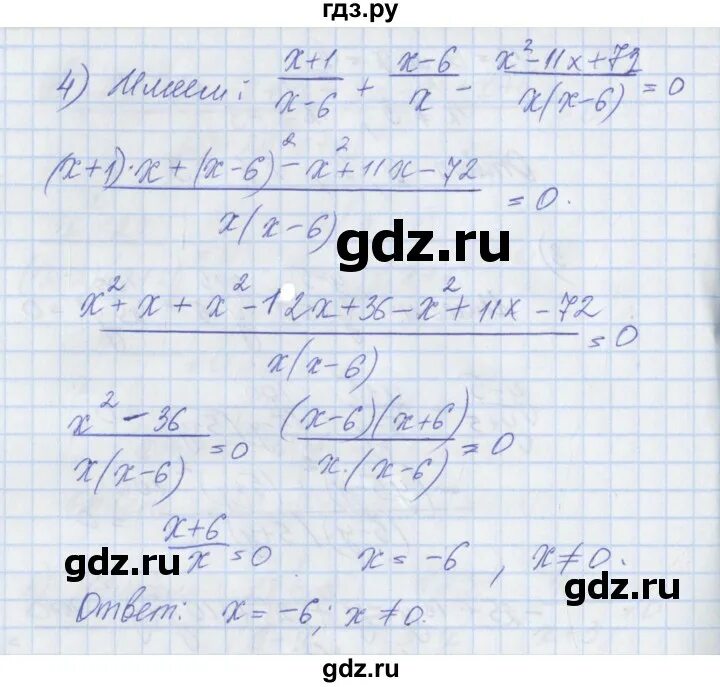 гдз.ру
4) Имеем: (x+1)/(x-6) + (x-6)/x - (x²-11x+72)/(x(x-6)) = 0
((x+1)·x+(x-6)²-x²+11x-72)/(x(x-6)) = 0.
gdz.ru
(x²+x+x²-12x+36-x²+11x-72)/(x(x-6)) = 0
(x²-36)/(x(x-6)) = 0 ((x-6)(x+6))/(x·(x-6)) = 0
(x+6)/x = 0. x = -6, x≠0.
gdz.ru gdz.ru
Ответ: x = -6; x≠0.
gdz.ru